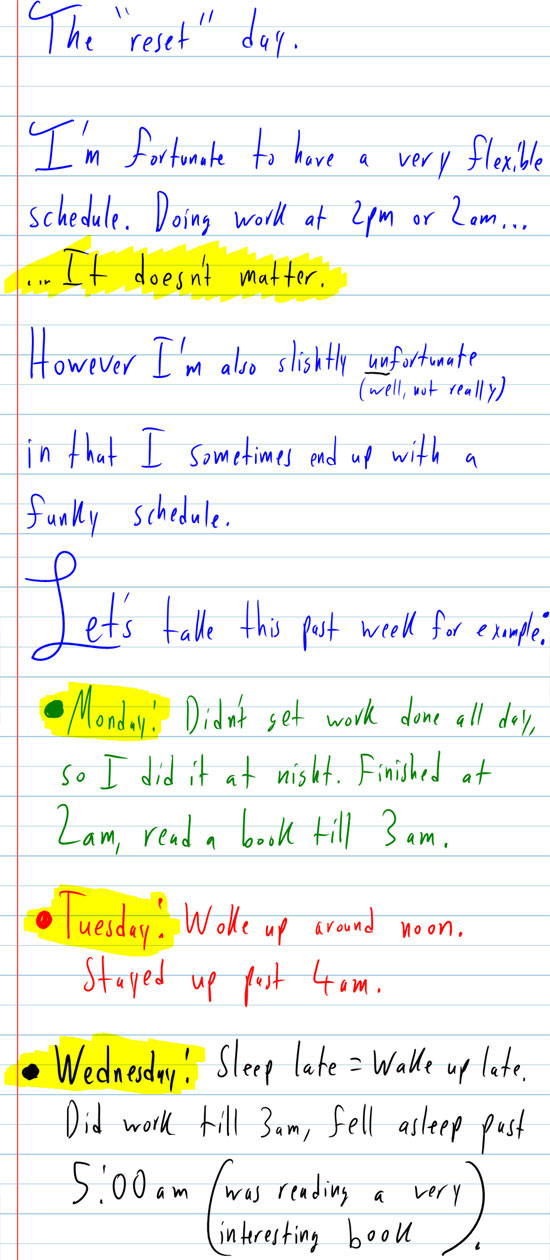 The "reset" day.
I'm fortunate to have a very flexible
schedule. Doing work at 2pm or 2am...
... It doesn't matter.
However I'm also slightly unfortunate
(well, not really)
in that I sometimes end up with a
funky schedule.
Let's take this past week for example:
• Monday: Didn't get work done all day,
so I did it at night. Finished at
2am, read a book till 3am.
• Tuesday: Woke up around noon.
Stayed up past 4am.
• Wednesday: Sleep late = Wake up late.
Did work till 3am, fell asleep past
5:00am (was reading a very
interesting book).